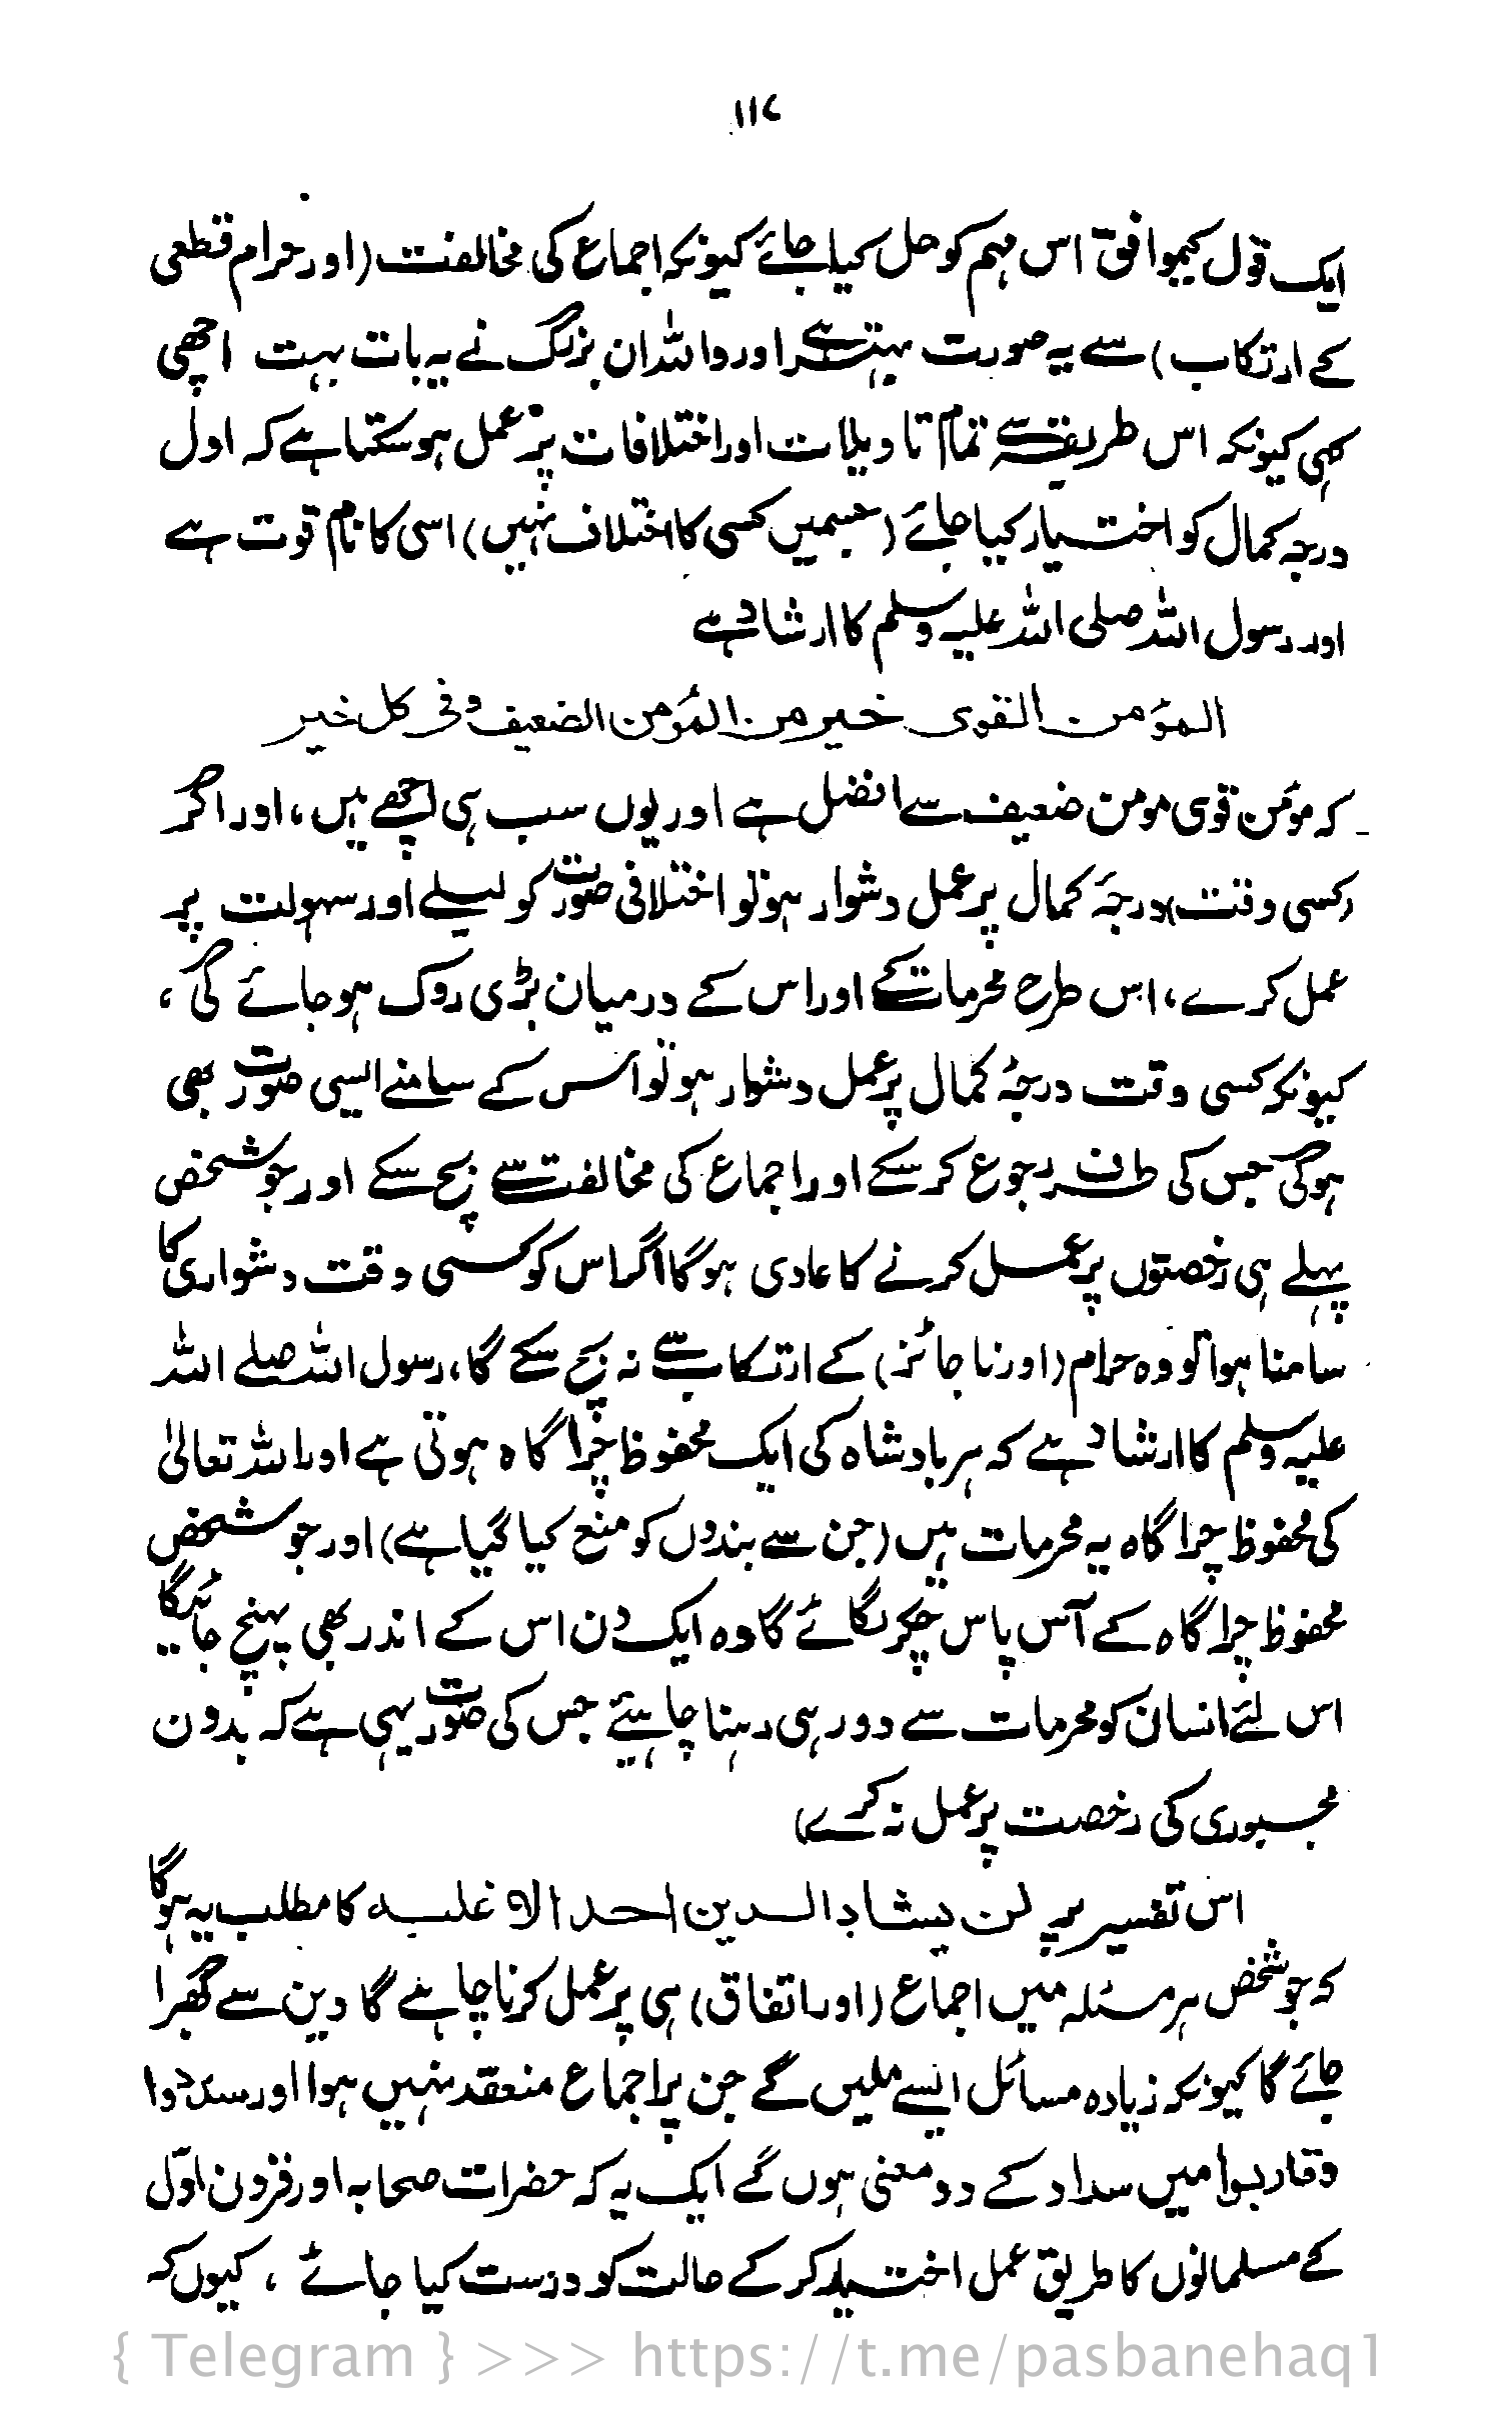 ۱۱۷
ایک قول کیموافق اس مہم کو حل کیا جائے کیونکہ اجماع کی مخالفت (اور حرام قطعی
کے ارتکاب) سے یہ صورت بہتر ہے اور واللہ ان بزرگ نے یہ بات بہت اچھی
کہی کیونکہ اس طریقہ سے تمام تاویلات اور اختلافات پر عمل ہو سکتا ہے کہ اول
درجہ کمال کو اختیار کیا جائے (جسمیں کسی کا اختلاف نہیں) اسی کا نام قوت ہے
اور رسول اللہ صلی اللہ علیہ وسلم کا ارشاد ہے
المؤمن القوی خیر من المؤمن الضعیف وفی کل خیر
کہ مؤمن قوی مومن ضعیف سے افضل ہے اور یوں سب ہی اچھے ہیں، اور اگر
(کسی وقت) درجۂ کمال پر عمل دشوار ہو تو اختلافی صورت کو لیلے اور سہولت پر
عمل کرے، اس طرح محرمات کے اور اس کے درمیان بڑی روک ہو جائے گی،
کیونکہ کسی وقت درجۂ کمال پر عمل دشوار ہو تو اس کے سامنے ایسی صورت بھی
ہو گی جس کی طرف رجوع کر سکے اور اجماع کی مخالفت سے بچ سکے اور جو شخص
پہلے ہی رخصتوں پر عمل کرنے کا عادی ہو گا اگر اس کو کسی وقت دشواری کا
سامنا ہوا تو وہ حرام (اور نا جائز) کے ارتکاب سے نہ بچ سکے گا، رسول اللہ صلے اللہ
علیہ وسلم کا ارشاد ہے کہ ہر بادشاہ کی ایک محفوظ چراگاہ ہوتی ہے اور اللہ تعالیٰ
کی محفوظ چراگاہ یہ محرمات ہیں (جن سے بندوں کو منع کیا گیا ہے) اور جو شخص
محفوظ چراگاہ کے آس پاس چکر لگائے گا وہ ایک دن اس کے اندر بھی پہنچ جائیگا
اس لئے انسان کو محرمات سے دور ہی رہنا چاہیئے جس کی صورت یہی ہے کہ بدون
مجبوری کی رخصت پر عمل نہ کرے)
اس تفسیر پر لن یشاد الدین احد الا غلبہ کا مطلب یہ ہو گا
کہ جو شخص ہر مسئلہ میں اجماع (اور اتفاق) ہی پر عمل کرنا چاہے گا دین سے گھبرا
جائے گا کیونکہ زیادہ مسائل ایسے ملیں گے جن پر اجماع منعقد نہیں ہوا اور سددوا
وقاربوا میں سداد کے دو معنی ہوں گے ایک یہ کہ حضرات صحابہ اور قرون اوّل
کے مسلمانوں کا طریق عمل اختیار کر کے حالت کو درست کیا جائے، کیوں کہ
{ Telegram } >>> https://t.me/pasbanehaq1